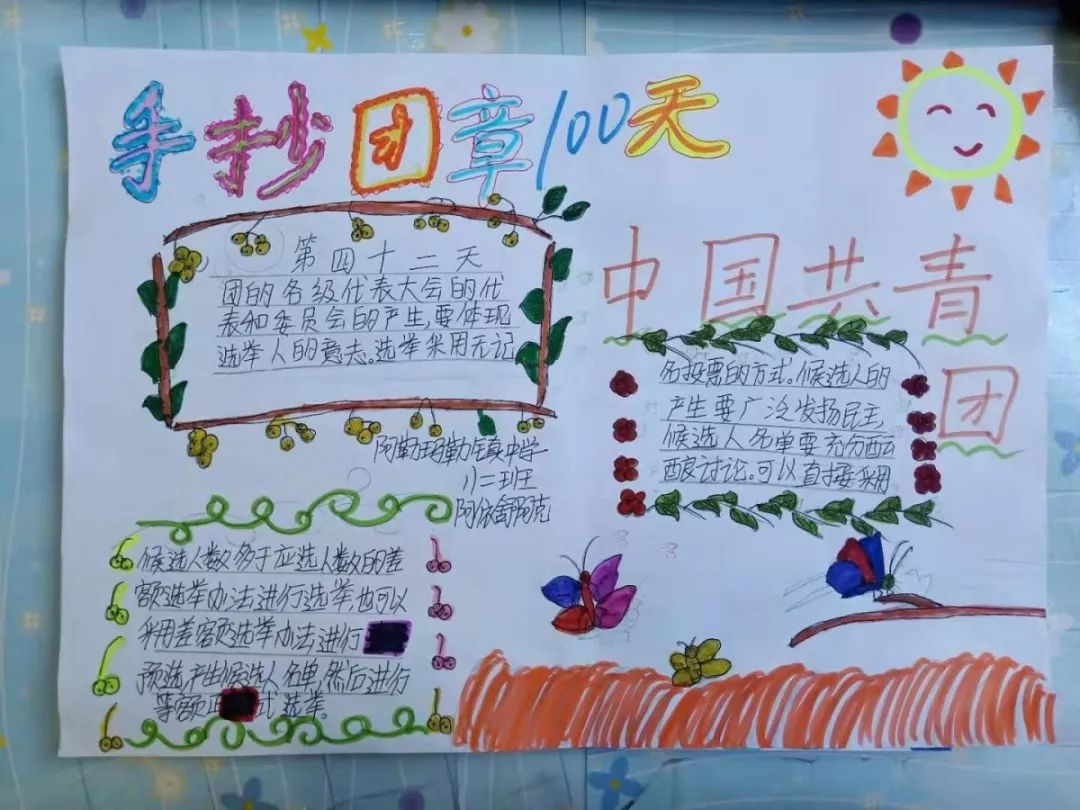 手抄团章100天
第四十二天
团的各级代表大会的代
表和委员会的产生,要体现
选举人的意志。选举采用无记
中国共青
团
名投票的方式。候选人的
产生要广泛发扬民主,
候选人名单要充分酝
酿讨论。可以直接采用
阿勒玛勒镇中学
八二班
候选人数多于应选人数的差
额选举办法进行选举,也可以
采用差额选举办法进行
预选,产生候选人名单,然后进行
等额正式选举。